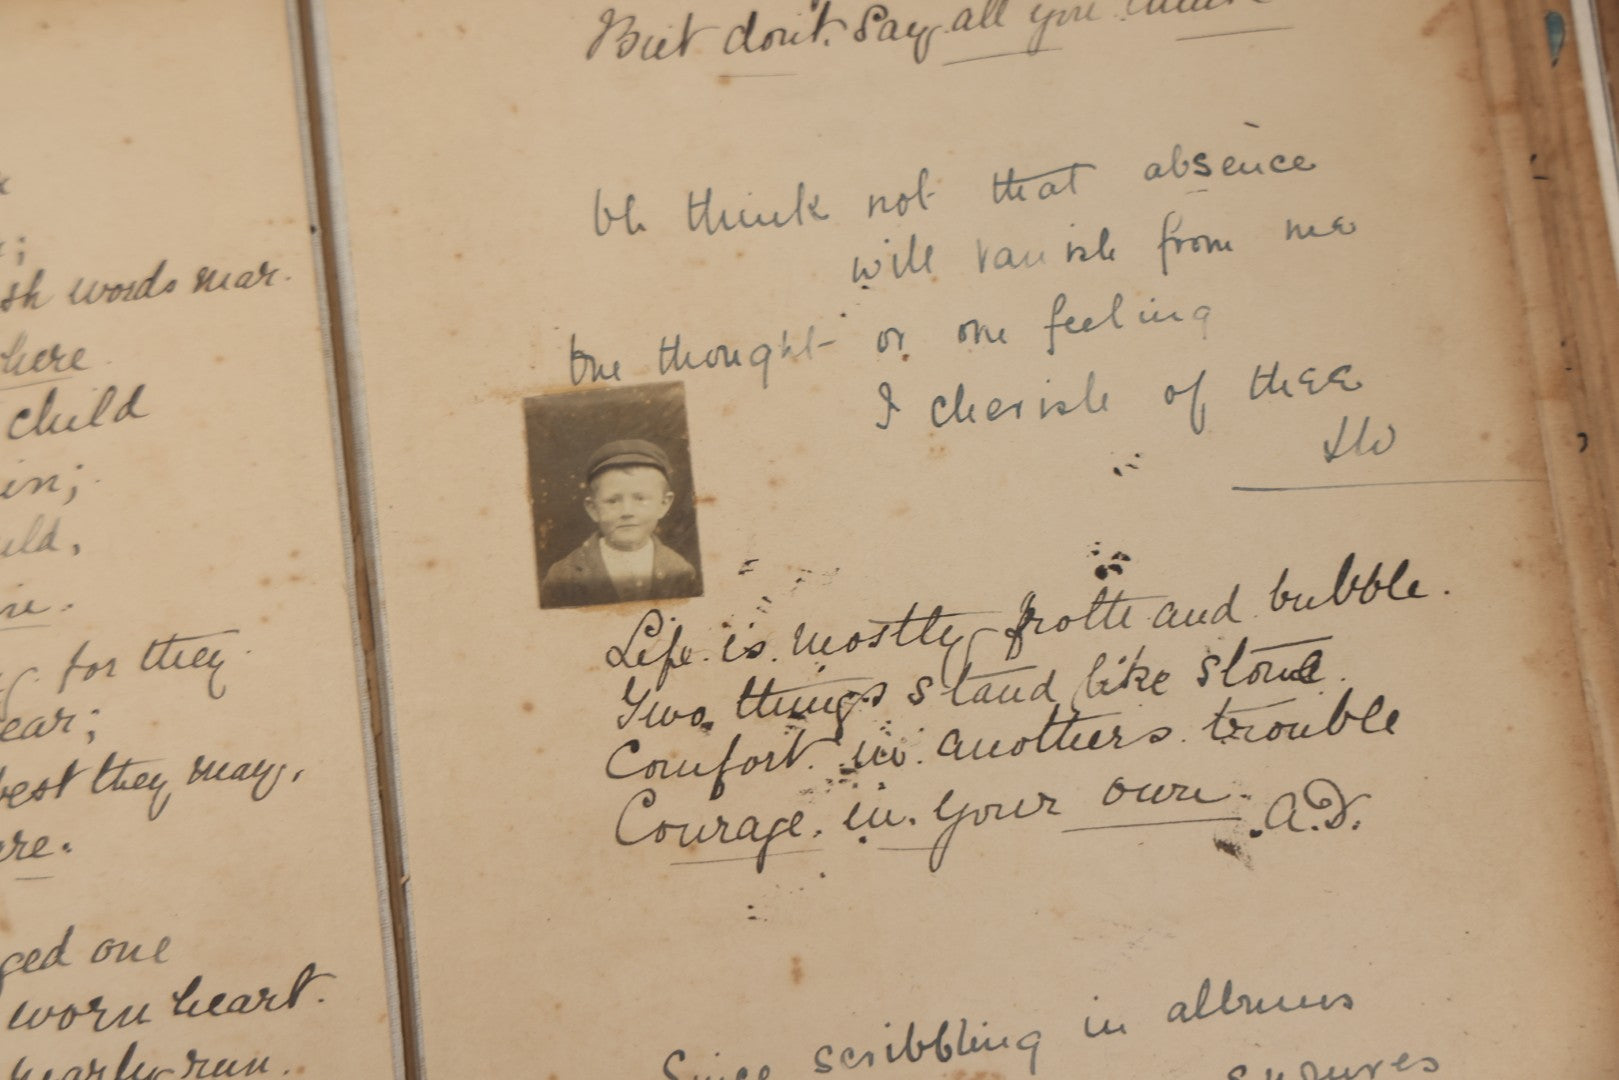 sh words mar.
here
child
in;
ild,
for they
ear;
best they may,
ere.
ged one
worn heart.
nearly run.
But don't. Say all you
Oh think not that absence
will vanish from me
One thought or one feeling
I cherish of thee
Life is mostly froth and bubble.
Two things stand like stone.
Comfort in anothers trouble
Courage in your own. A.D.
Since scribbling in albums